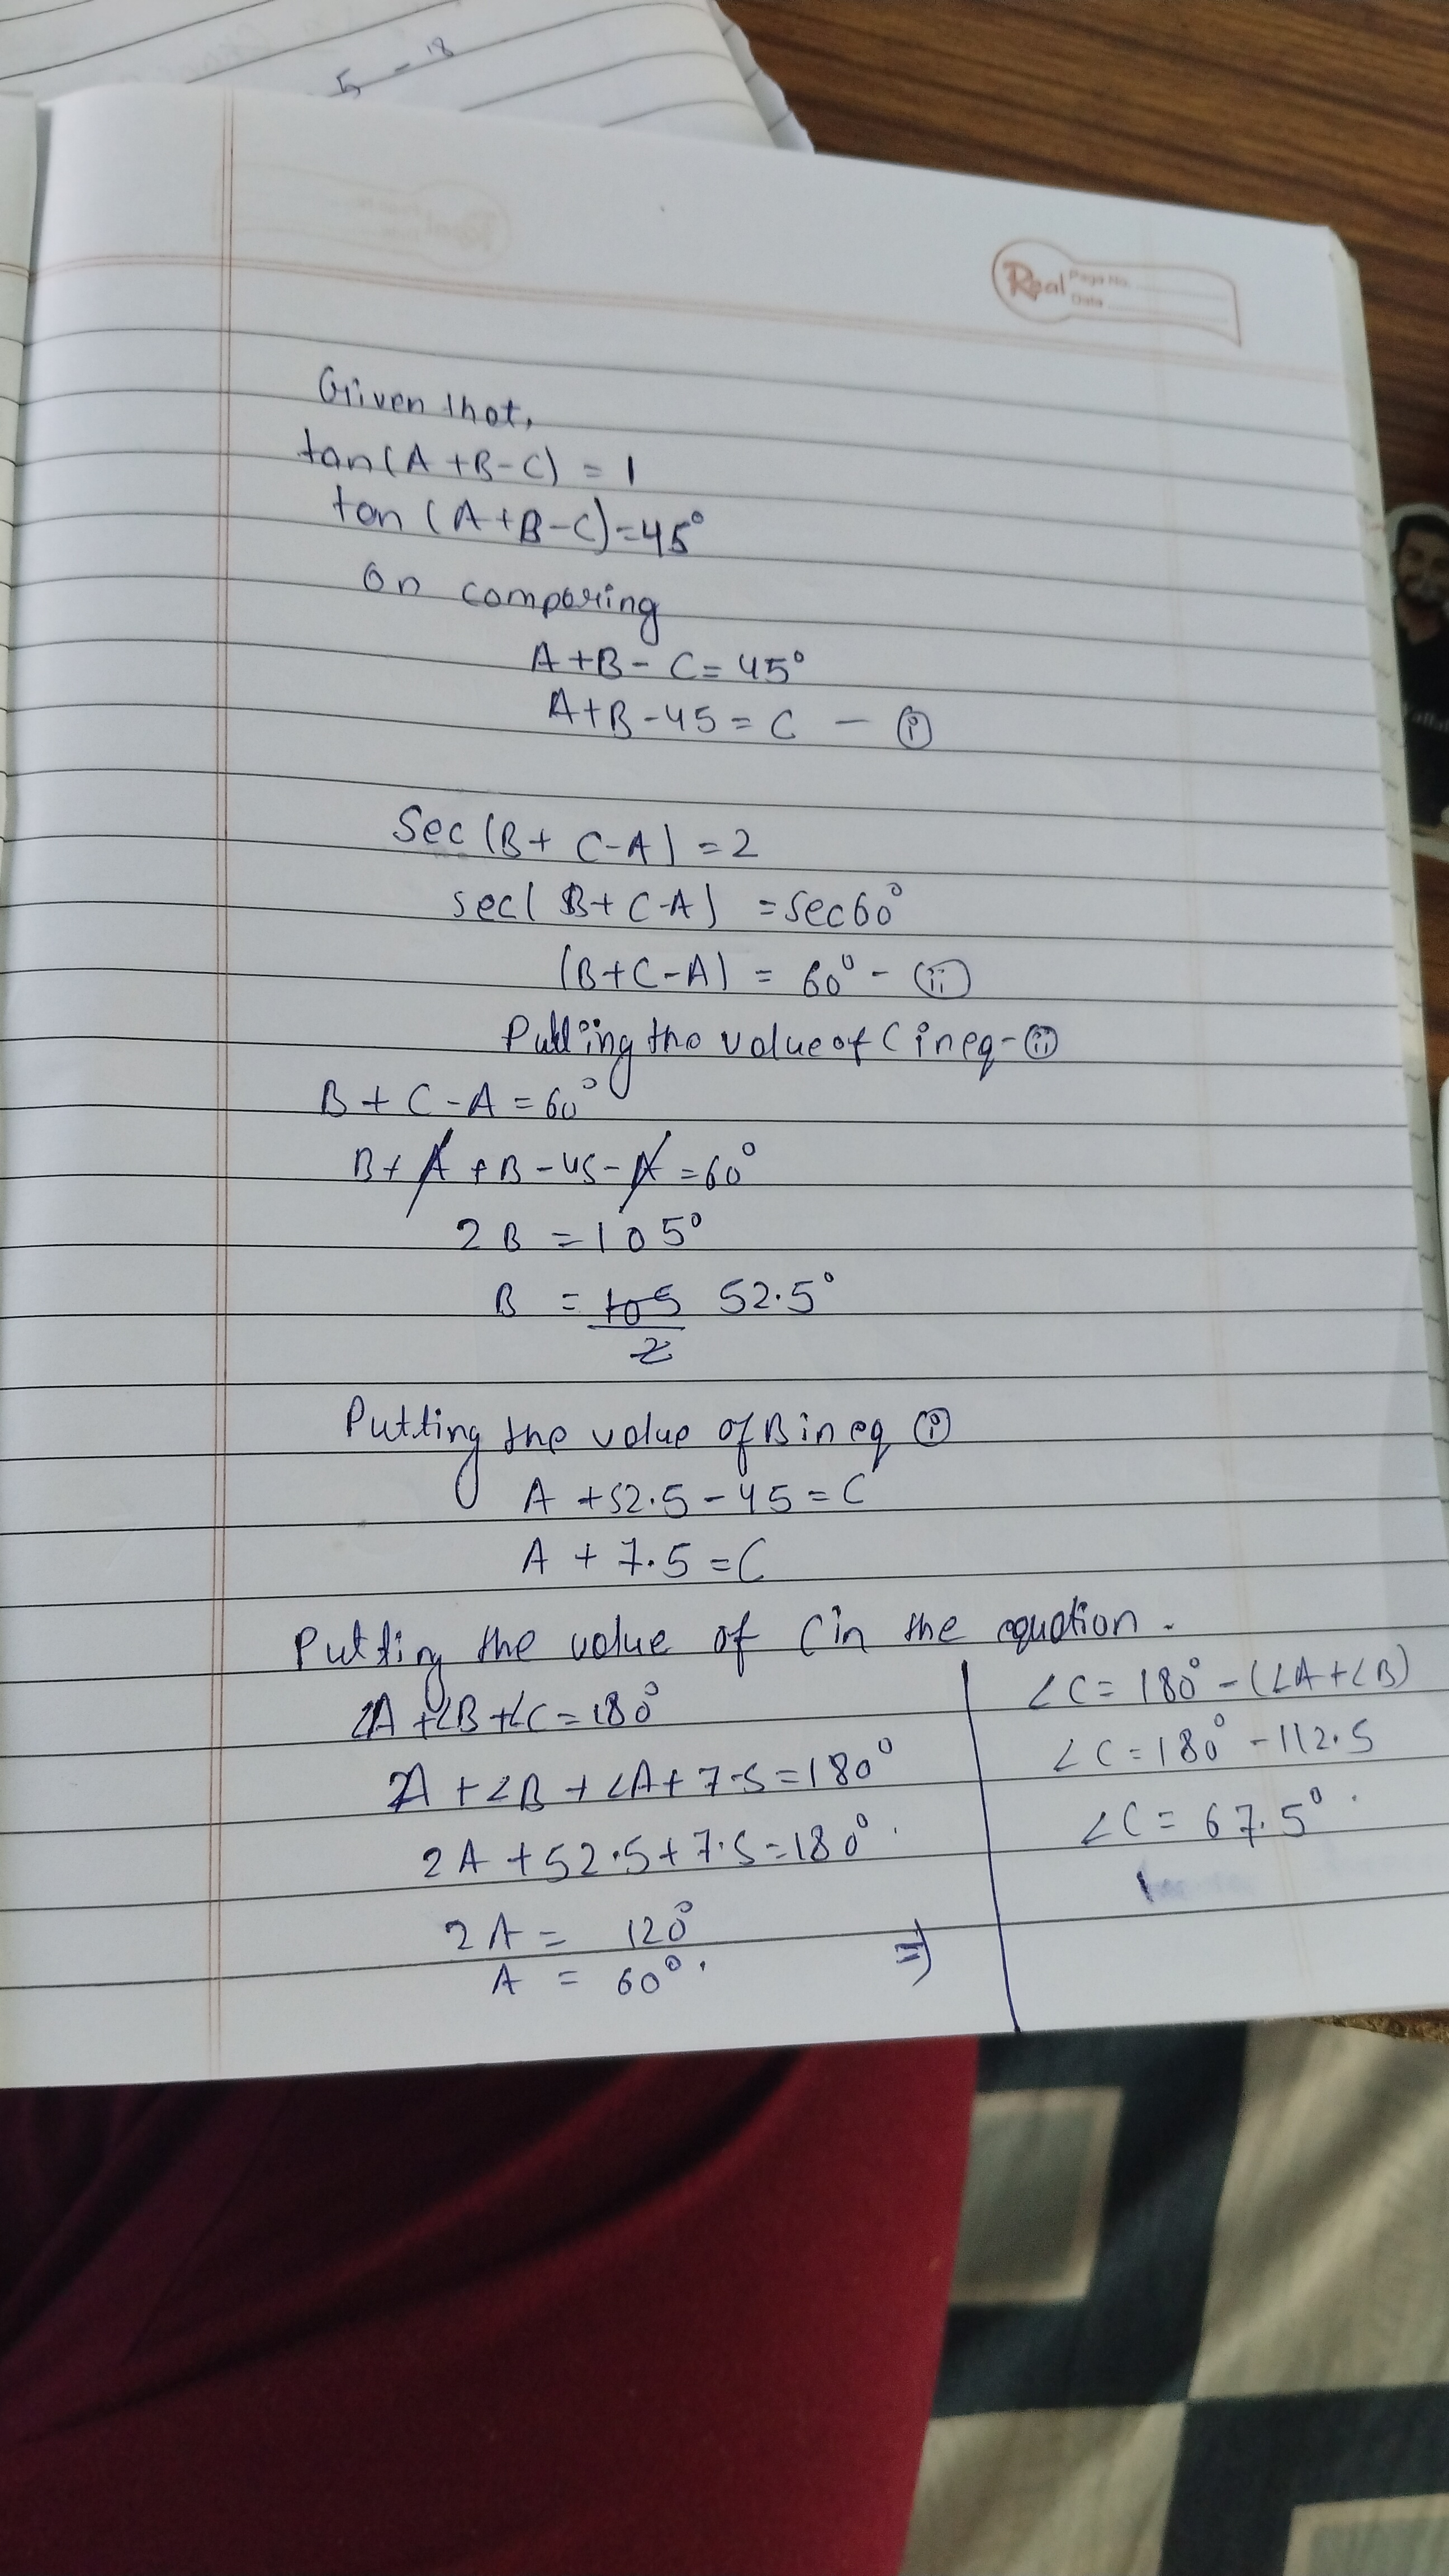 5 - 18
Real Page No.
Date
Given that,
tan(A+B-C) = 1
tan (A+B-C)=45°
on comparing
A+B-C=45°
A+B-45=C - (i)
Sec(B+C-A) = 2
sec(B+C-A) = Sec60°
(B+C-A) = 60° - (ii)
Putting the value of C in eq-(ii)
B+C-A=60°
B+A+B-45-A=60°
2B = 105°
B = 105/2 52.5°
Putting the value of B in eq (i)
A+52.5-45=C
A+7.5=C
Putting the value of C in the equation.
∠A+∠B+∠C=180°
∠A+∠B+∠A+7.5=180°
2A+52.5+7.5=180°
2A= 120°
A = 60°. ⇒
∠C=180°-(∠A+∠B)
∠C=180°-112.5
∠C=67.5°.